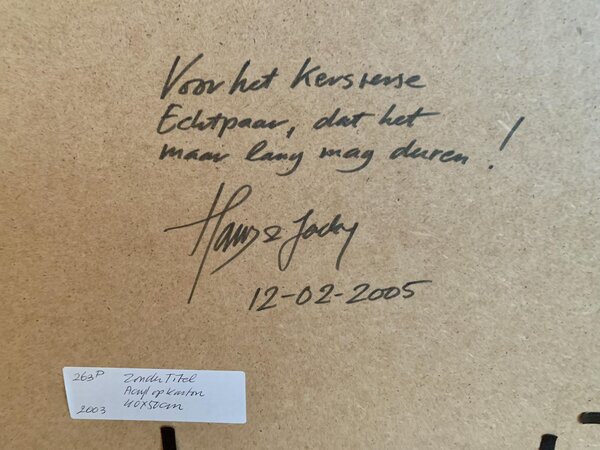 Voor het Kersverse
Echtpaar, dat het
maar lang mag duren!
Hans & Jacky
12-02-2005
263P Zonder Titel
Acryl op karton
2003 40x50cm